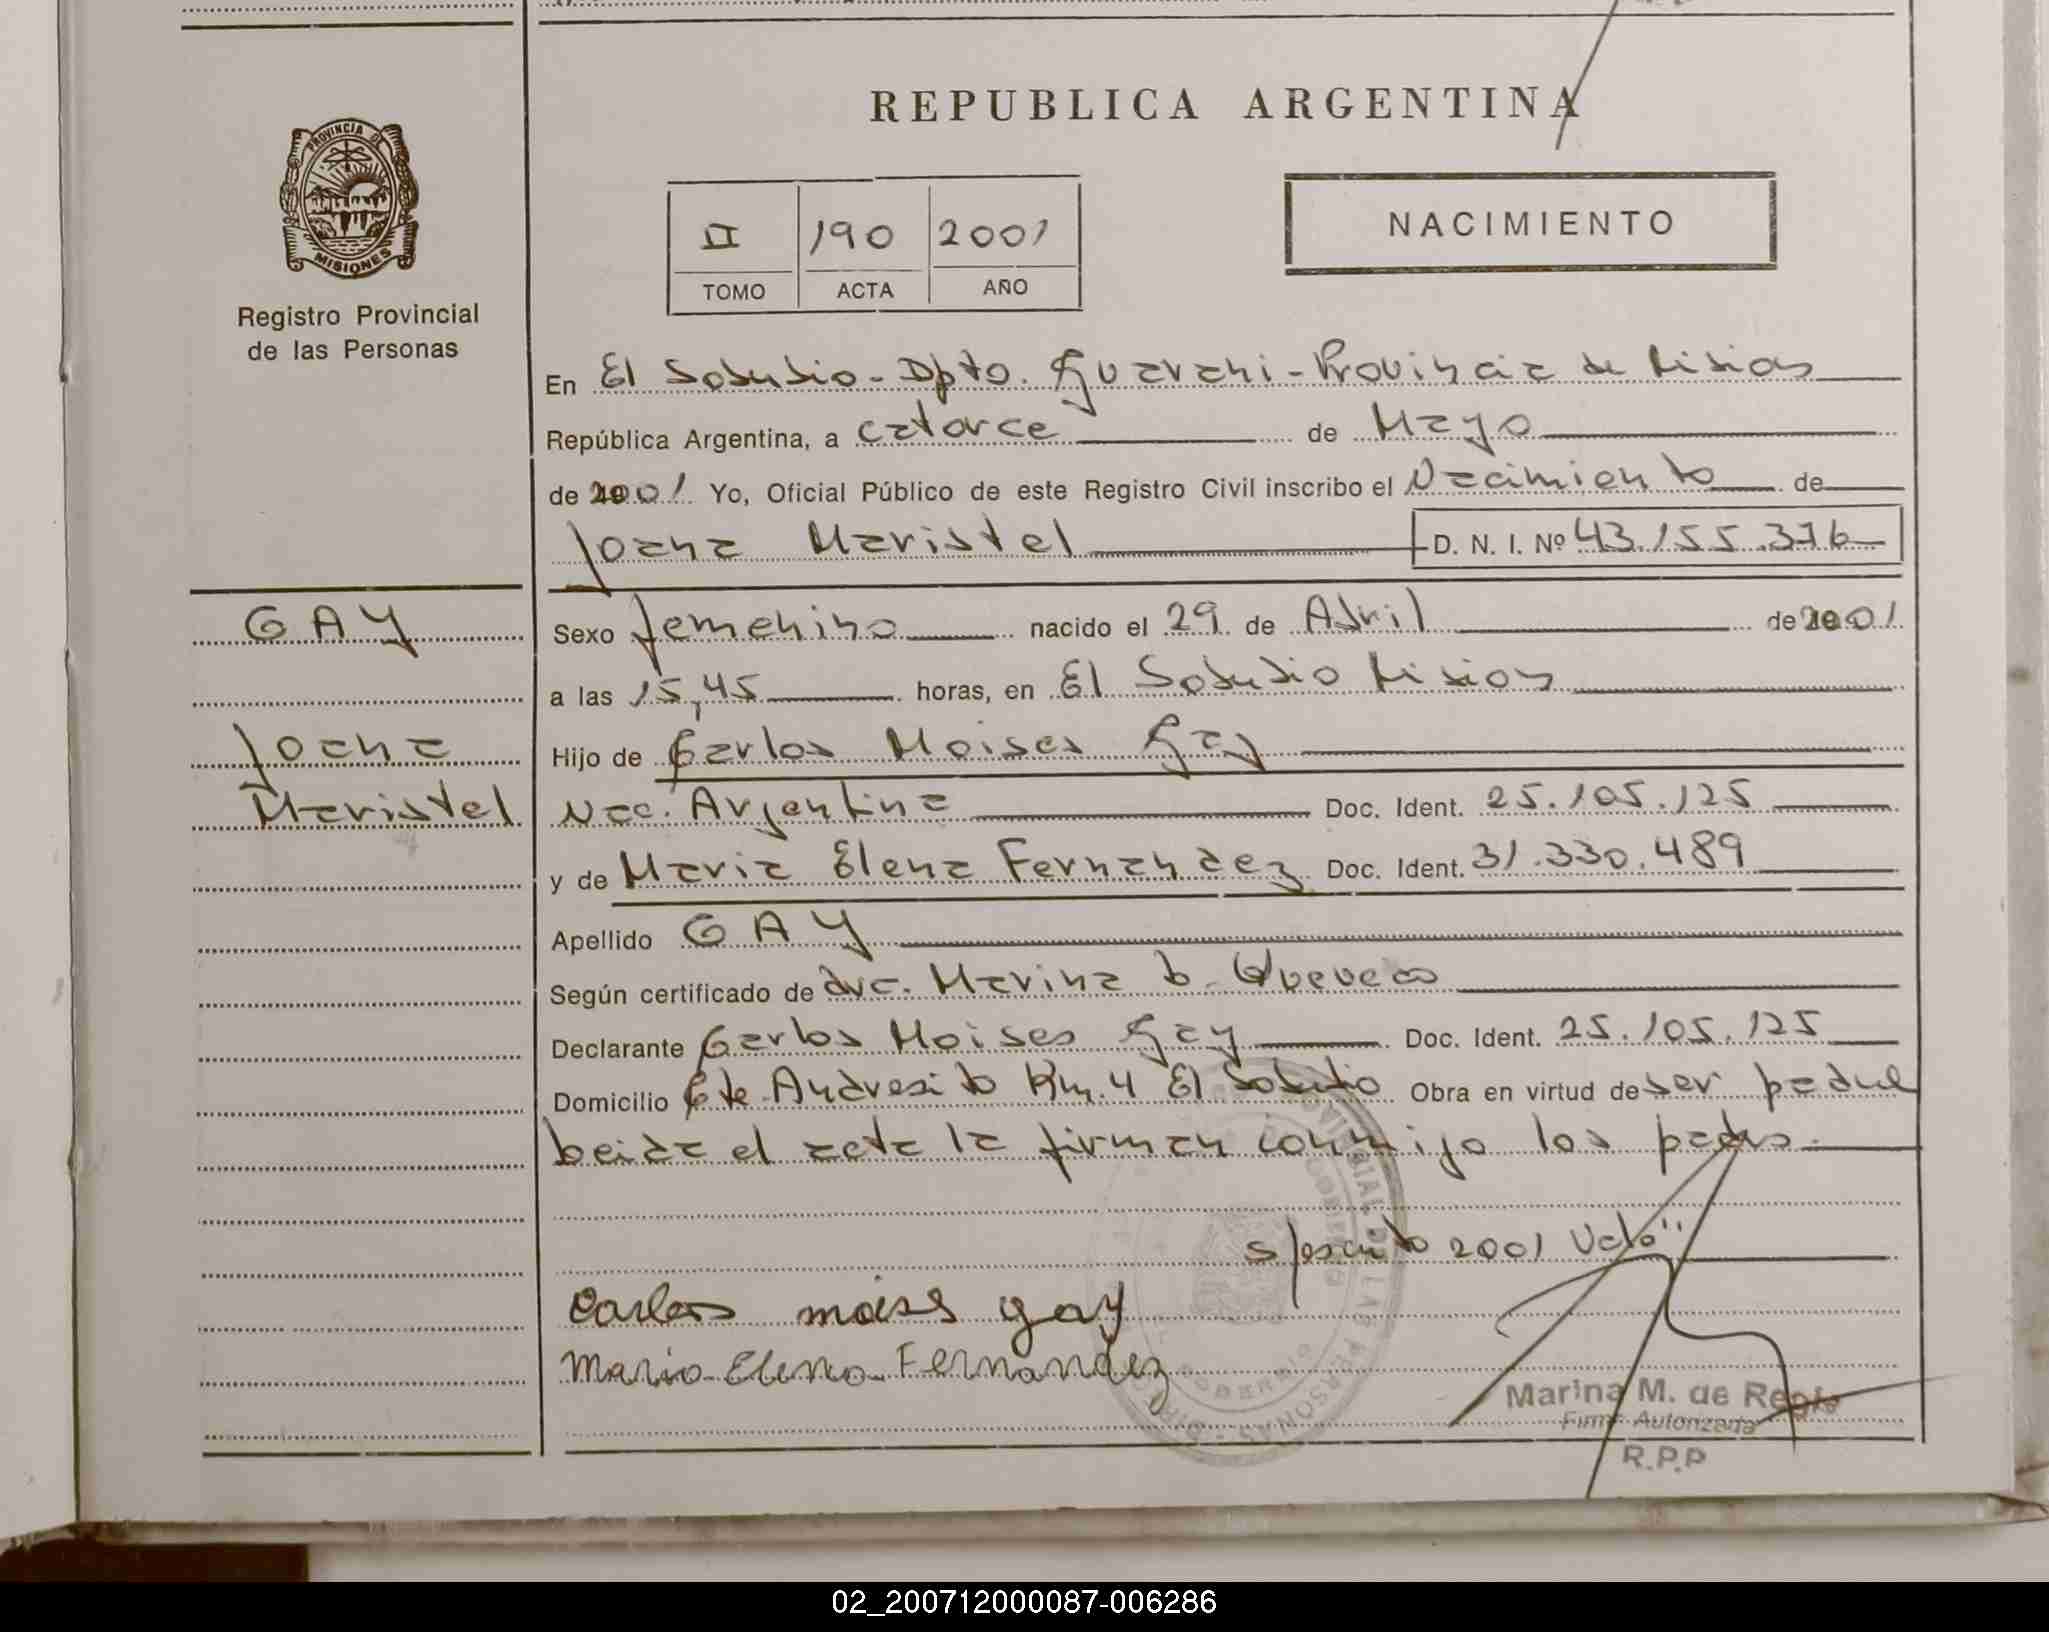 REPUBLICA ARGENTINA
PROVINCIA DE
MISIONES
Registro Provincial
de las Personas
II 190 2001
TOMO ACTA AÑO
NACIMIENTO
En El Soberbio - Dpto. Guarani - Provincia de Misiones
República Argentina, a catorce de Mayo
de 2001 Yo, Oficial Público de este Registro Civil inscribo el Nacimiento de
Joana Maristel D. N. I. Nº 43.155.376
GAY
Joana
Maristel
Sexo femenino nacido el 29 de Abril de 2001
a las 15,45 horas, en El Soberbio Misiones
Hijo de Carlos Moises Gay
Nac. Argentina Doc. Ident. 25.105.125
y de Maria Elena Fernandez Doc. Ident. 31.330.489
Apellido GAY
Según certificado de Marina
Declarante Carlos Moises Gay Doc. Ident. 25.105.125
Domicilio Cte. Andresito Km. 4 El Soberbio Obra en virtud de ser padre
Leida el acta la firman conmigo los padres.
2001
Carlos moises gay
Maria Elena Fernandez
Marina M. de Regis
Firma Autorizada
R.P.P
02_200712000087-006286